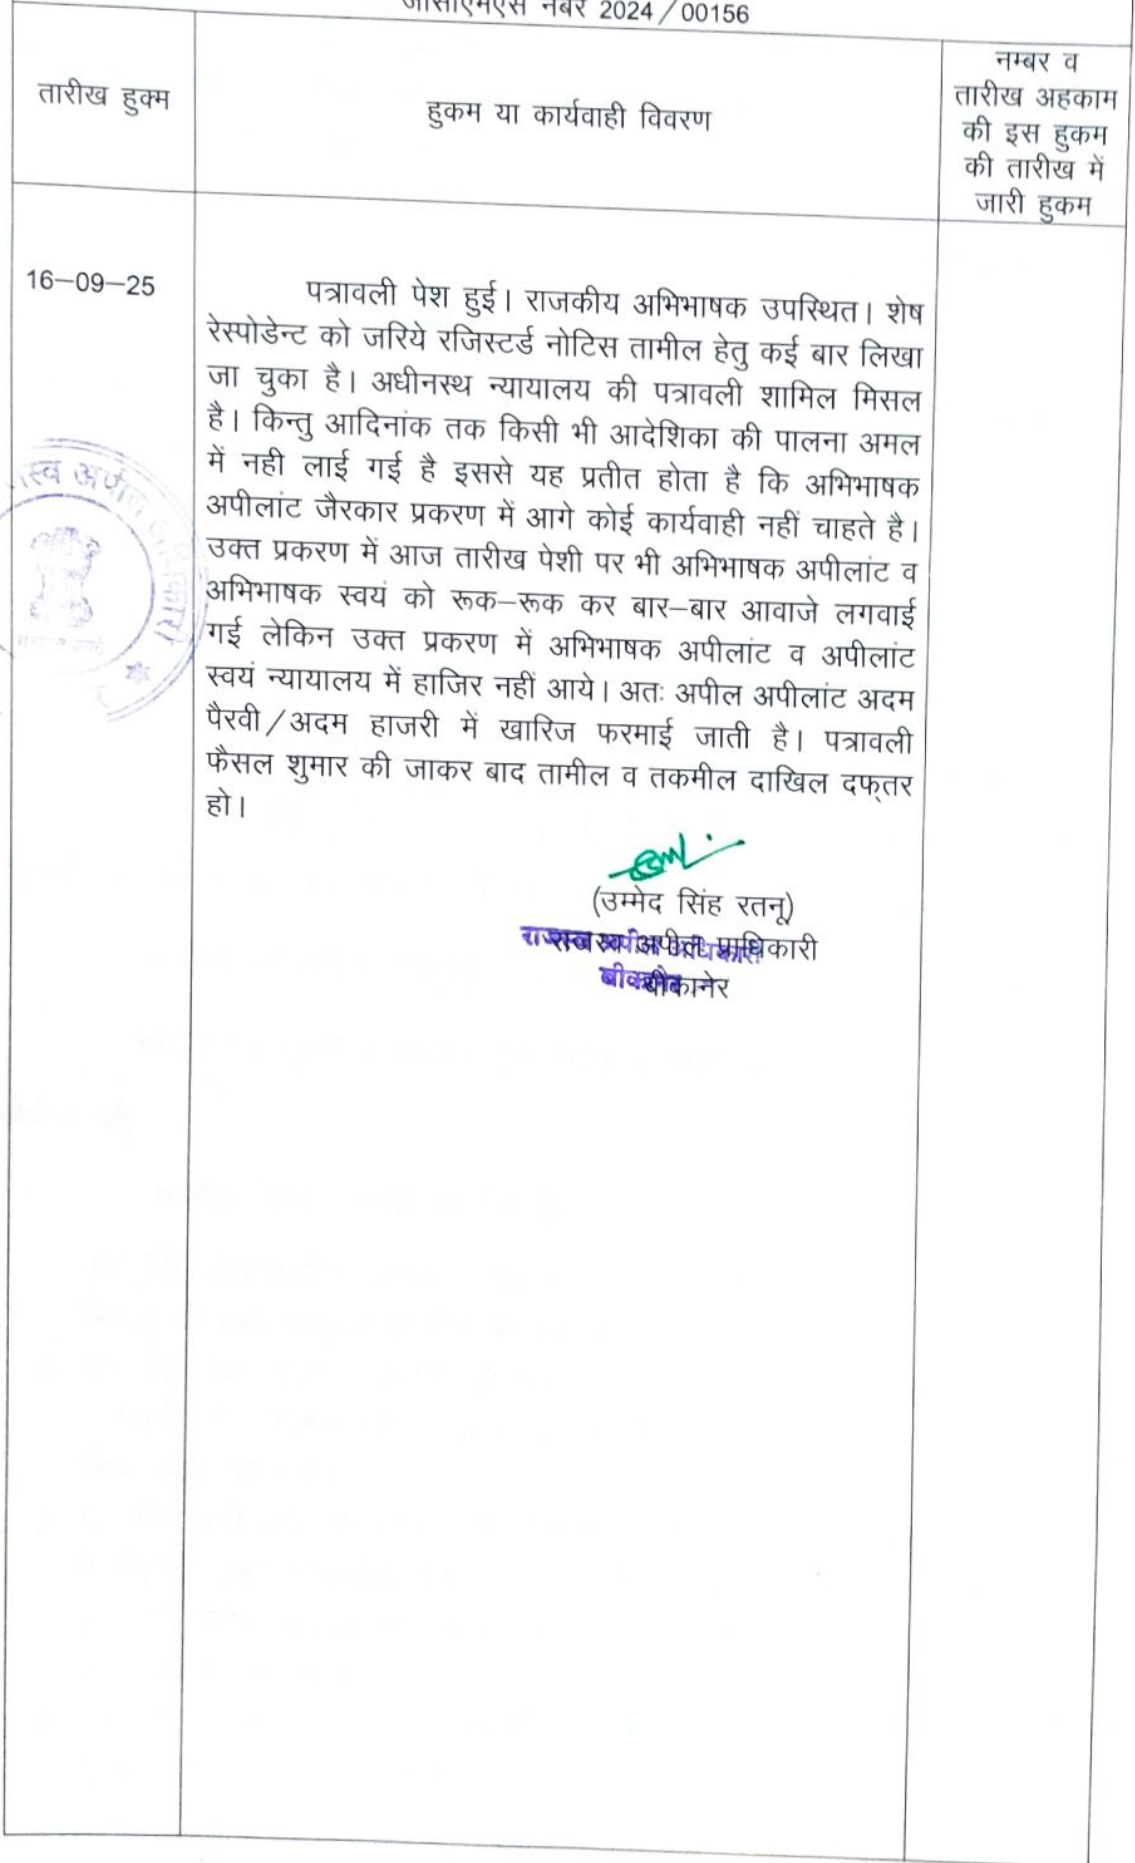 जीसीएमएस नंबर 2024/00156
तारीख हुक्म
हुकम या कार्यवाही विवरण
नम्बर व
तारीख अहकाम
की इस हुकम
की तारीख में
जारी हुकम
16–09–25
पत्रावली पेश हुई। राजकीय अभिभाषक उपस्थित। शेष
रेस्पोडेन्ट को जरिये रजिस्टर्ड नोटिस तामील हेतु कई बार लिखा
जा चुका है। अधीनस्थ न्यायालय की पत्रावली शामिल मिसल
है। किन्तु आदिनांक तक किसी भी आदेशिका की पालना अमल
में नही लाई गई है इससे यह प्रतीत होता है कि अभिभाषक
अपीलांट जैरकार प्रकरण में आगे कोई कार्यवाही नहीं चाहते है।
उक्त प्रकरण में आज तारीख पेशी पर भी अभिभाषक अपीलांट व
अभिभाषक स्वयं को रूक–रूक कर बार–बार आवाजे लगवाई
गई लेकिन उक्त प्रकरण में अभिभाषक अपीलांट व अपीलांट
स्वयं न्यायालय में हाजिर नहीं आये। अतः अपील अपीलांट अदम
पैरवी/अदम हाजरी में खारिज फरमाई जाती है। पत्रावली
फैसल शुमार की जाकर बाद तामील व तकमील दाखिल दफ्तर
हो।
(उम्मेद सिंह रतनू)
राजस्व अपील प्राधिकारी
बीकानेर
राजस्व अपील अधिकारी
बीकानेर